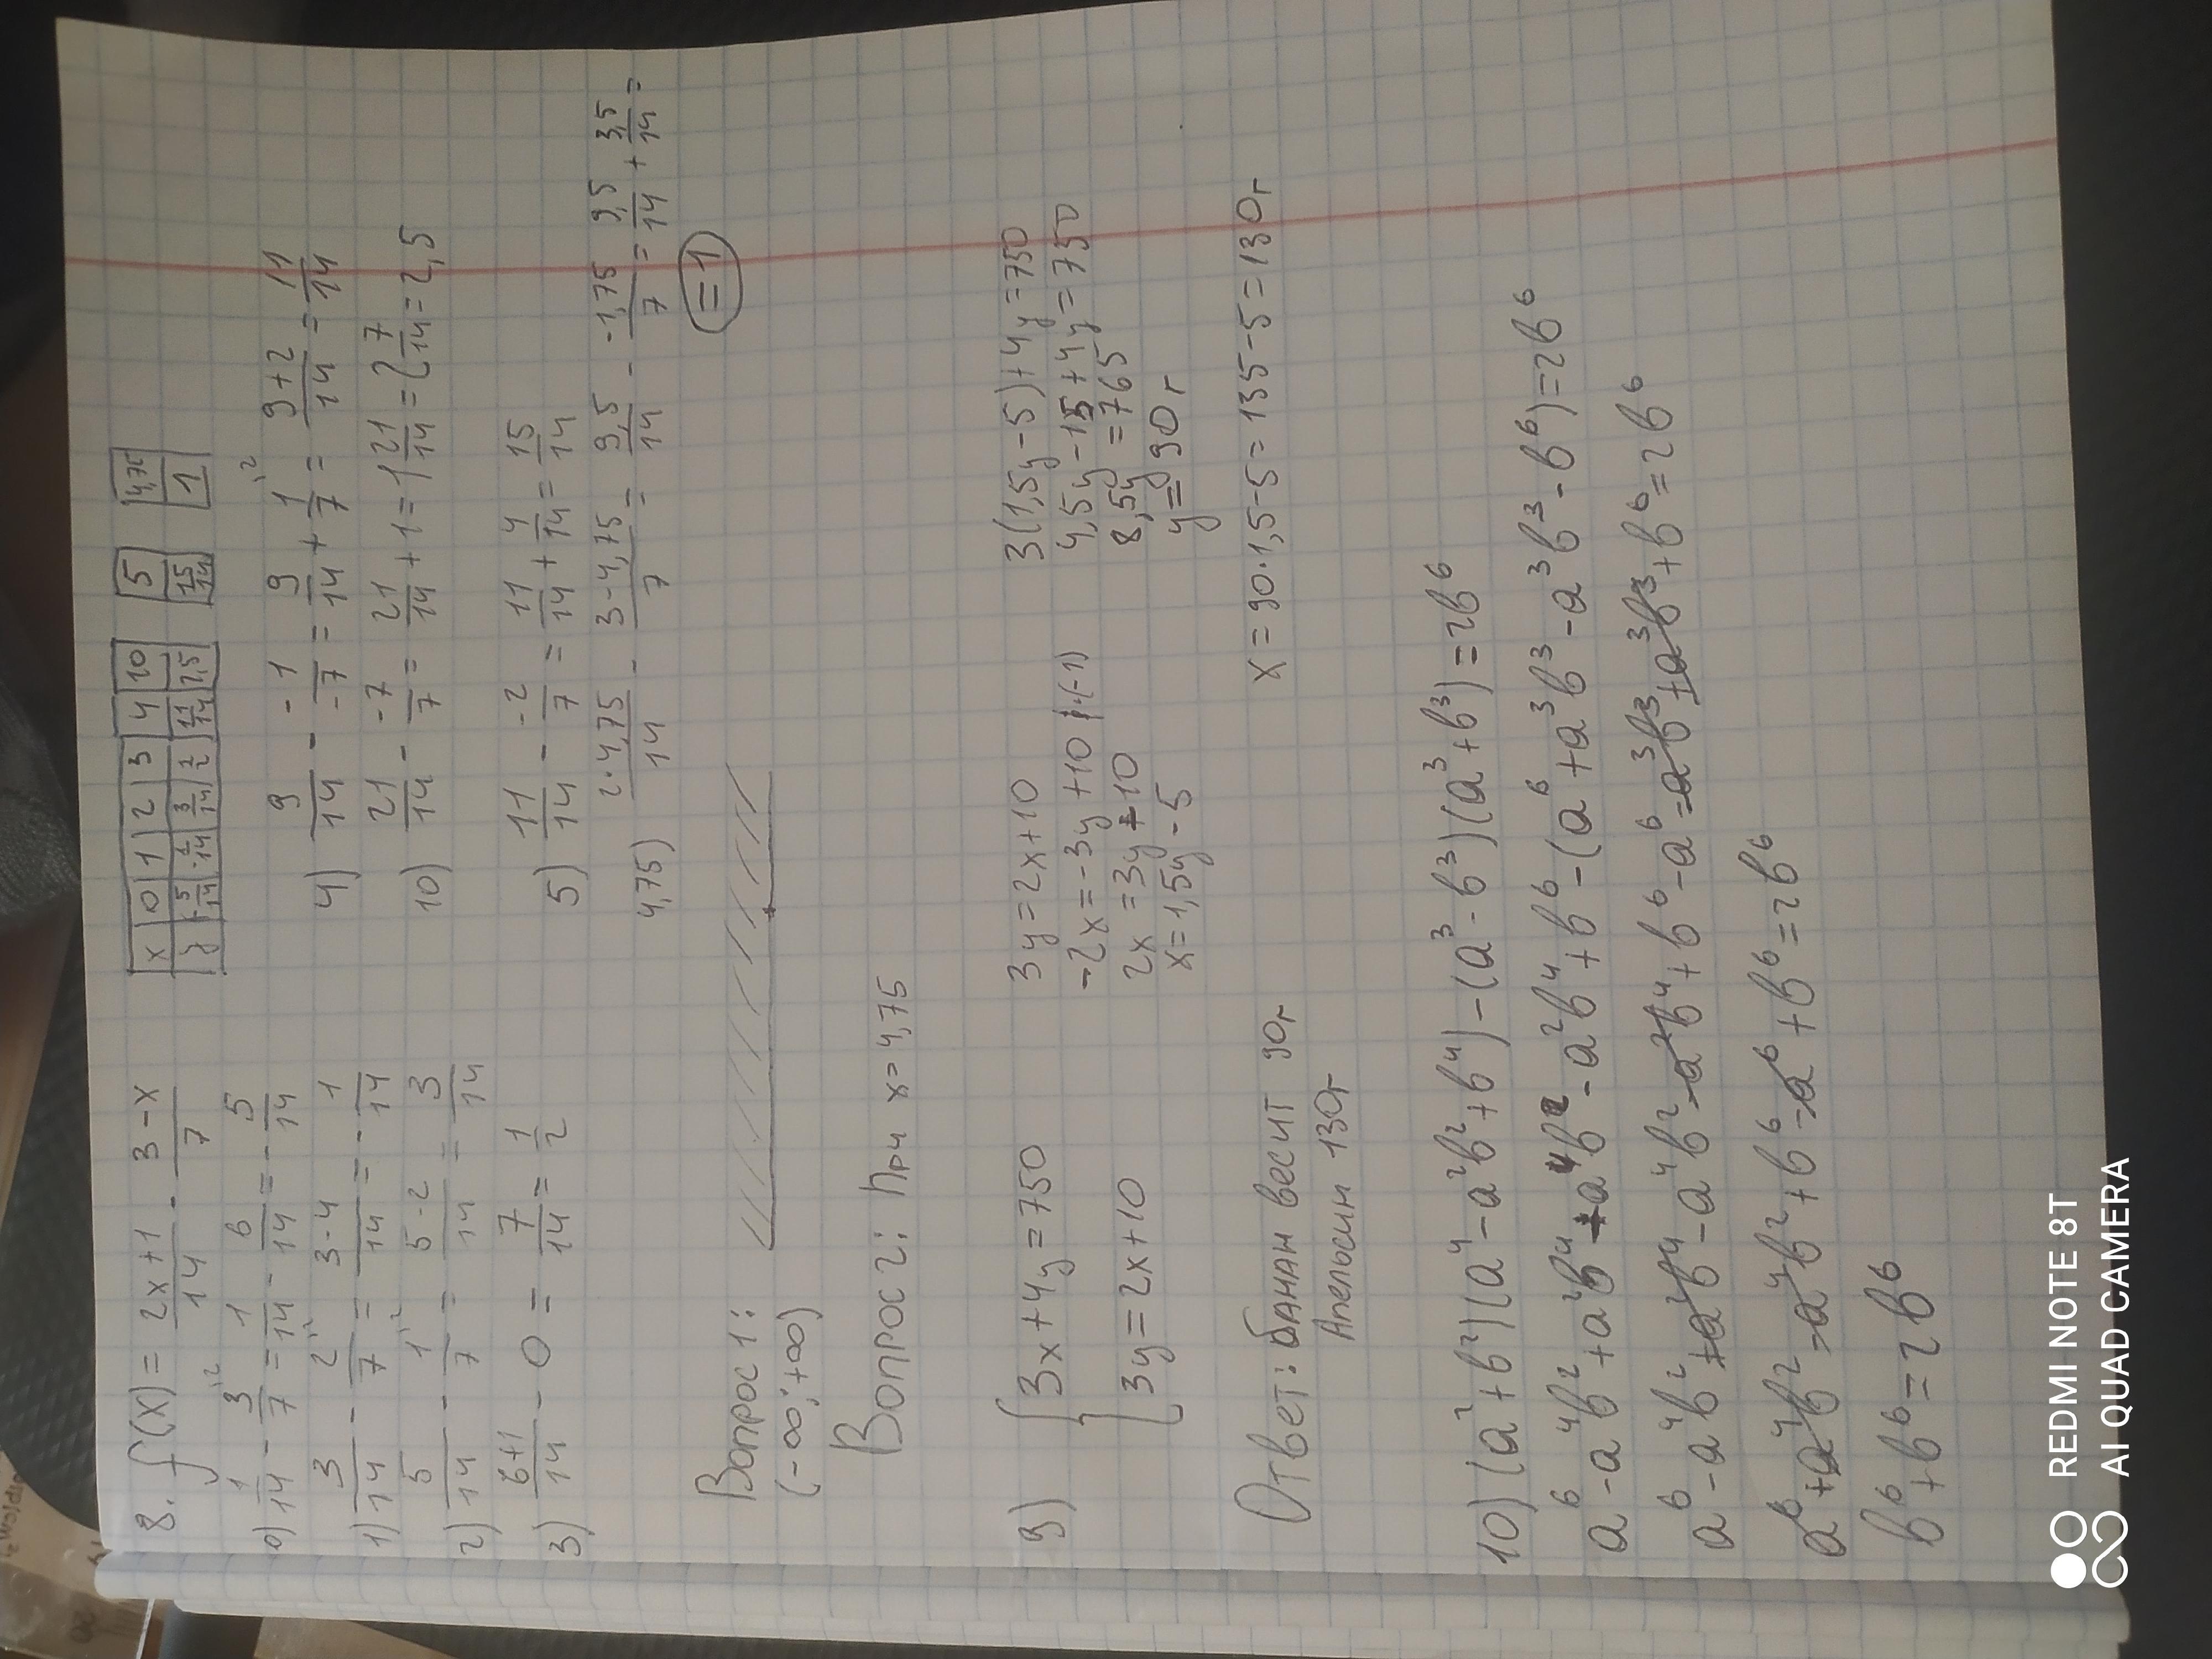 8. f(x) = (2x+1)/14 - (3-x)/7
x | 0 | 1 | 2 | 3 | 4 | 10
y | -5/14 | -1/14 | 3/14 | 1/2 | 11/14 | 2,5
5
15/14
4,75
1
0) 1/14 - 3/7^(\2) = 1/14 - 6/14 = -5/14
1) 3/14 - 2/7^(\2) = (3-4)/14 = -1/14
2) 5/14 - 1/7^(\2) = (5-2)/14 = 3/14
3) (6+1)/14 - 0 = 7/14 = 1/2
4) 9/14 - (-1)/(-7) = 9/14 + 1/7^(\2) = (9+2)/14 = 11/14
10) 21/14 - (-7)/7 = 21/14 + 1 = 1 21/14 = 2 7/14 = 2,5
5) 11/14 - (-2)/7 = 11/14 + 4/14 = 15/14
4,75) (2·4,75)/14 - (3-4,75)/7 = 9,5/14 - (-1,75)/7 = 9,5/14 + 3,5/14 =
= 1
Вопрос 1:
(-∞;+∞)
Вопрос 2: При x=4,75
9) { 3x+4y=750
3y=2x+10
3y=2x+10
-2x=-3y+10 |·(-1)
2x=3y-10
x=1,5y-5
3(1,5y-5)+4y=750
4,5y-15+4y=750
8,5y=765
y=90г
x=90·1,5-5=135-5=130г
Ответ: банан весит 90г
Апельсин 130г
10) (a²+b²)(a⁴-a²b²+b⁴)-(a³-b³)(a³+b³)=2b⁶
a⁶-a⁴b²+a²b⁴+a⁴b²-a²b⁴+b⁶-(a⁶+a³b³-a³b³-b⁶)=2b⁶
a⁶-a⁴b²+a²b⁴-a⁴b²-a²b⁴+b⁶-a⁶-a³b³+a³b³+b⁶=2b⁶
a⁶+a⁴b²-a⁴b²+b⁶-a⁶+b⁶=2b⁶
b⁶+b⁶=2b⁶
REDMI NOTE 8T
AI QUAD CAMERA